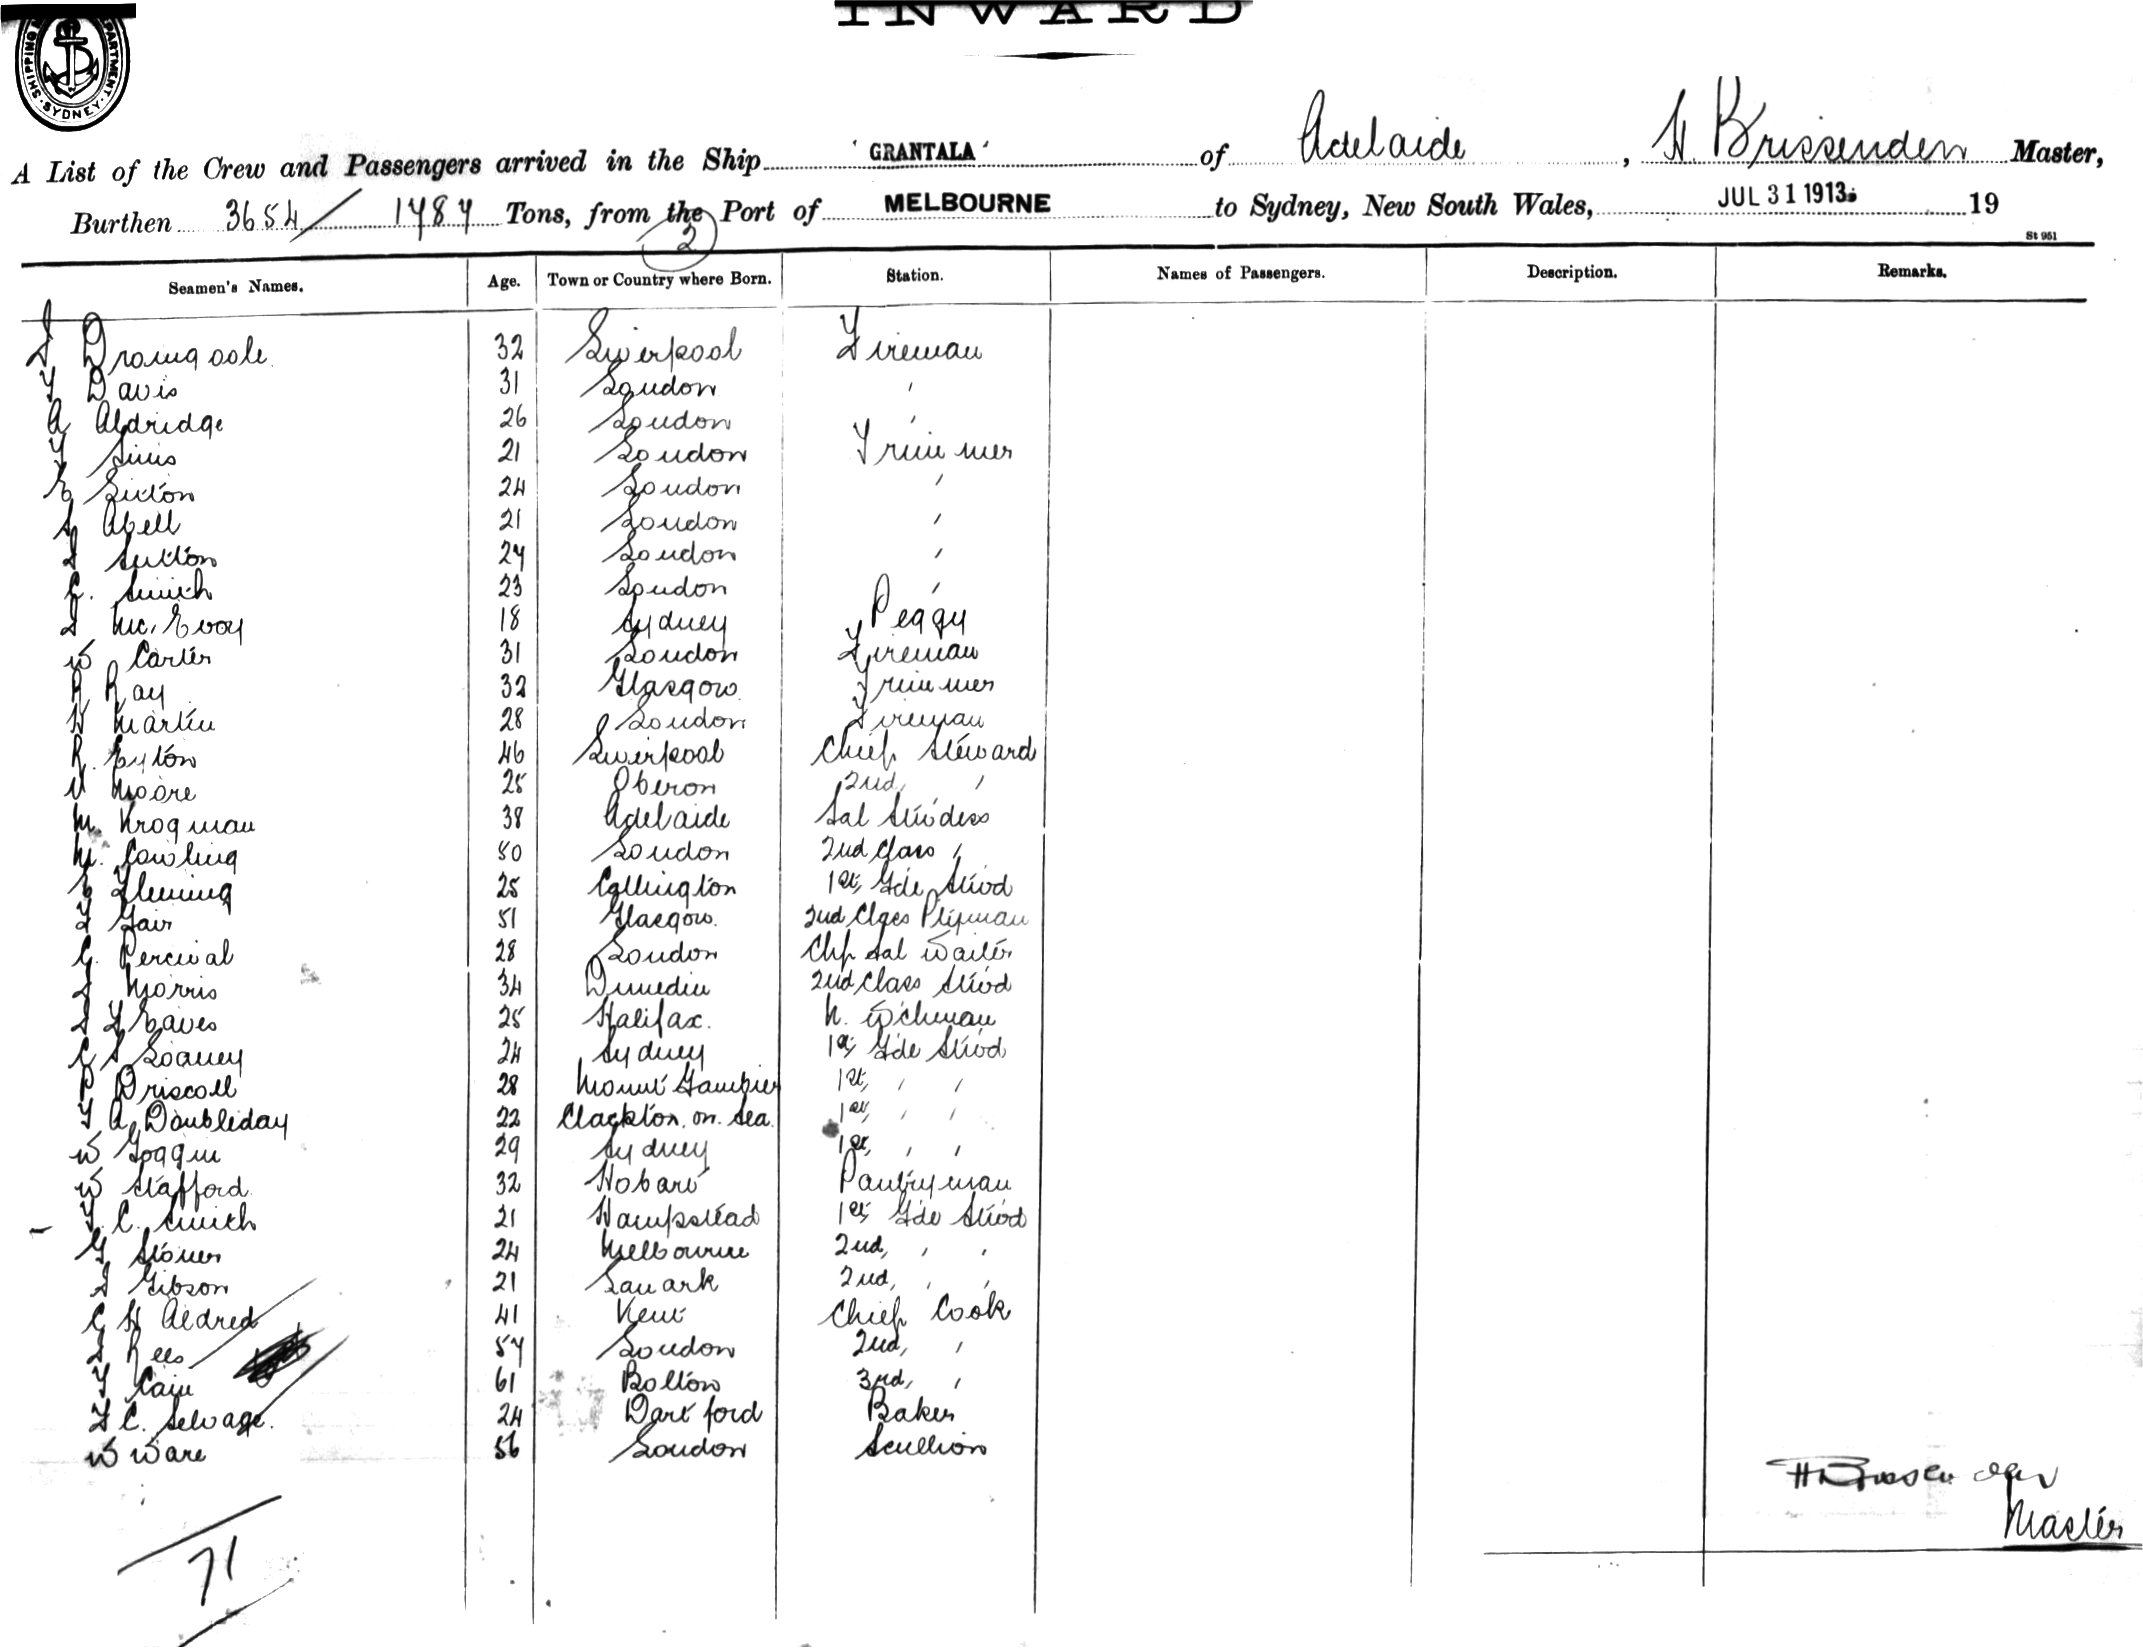 SHIPPING DEPARTMENT SYDNEY
INWARD
A List of the Crew and Passengers arrived in the Ship 'GRANTALA' of Adelaide, H Brissenden Master,
Burthen 3654/1787 Tons, from the Port of MELBOURNE to Sydney, New South Wales, JUL 31 1913 19
2
St 951
Seamen's Names. Age. Town or Country where Born. Station. Names of Passengers. Description. Remarks.
J Dromgoole 32 Liverpool Fireman
T Davis 31 London "
A Aldridge 26 London "
T Sims 21 London Trimmer
E Sinton 24 London "
S Abell 21 London "
J Sutton 27 London "
C. Smith 23 London "
J McEvoy 18 Sydney Peggy
W Carter 31 London Fireman
R Ray 32 Glasgow Trimmer
H Martin 28 London Fireman
R. Eyton 46 Liverpool Chief Steward
V Moore 25 Oberon 2nd "
M. Krogman 38 Adelaide Sal Stwdess
M. Cowling 50 London 2nd Class "
E Fleming 25 Callington 1st Gde Stwd
F Gair 51 Glasgow 2nd Class
G. Percival 28 London Chf Sal Waiter
J Morris 34 Dunedin 2nd Class Stwd
J F Eaves 25 Halifax. N. W'chman
C S Loaney 24 Sydney 1st Gde Stwd
P Driscoll 28 Mount Gambier 1st " "
T A Doubleday 22 Clackton. on. Sea. 1st " "
W Goggin 29 Sydney 1st " "
W Stafford 32 Hobart Pantryman
T. C. Smith 21 Hampstead 1st Gde Stwd
G Stoner 24 Melbourne 2nd " "
J Gibson 21 Lanark 2nd " "
C H Aldred 41 Kent Chief Cook
J Rees 57 London 2nd "
T Cain 61 Bolton 3rd "
F C. Selvage. 24 Dartford Baker
W Ware 56 London Scullion
H Brissenden
Master
71